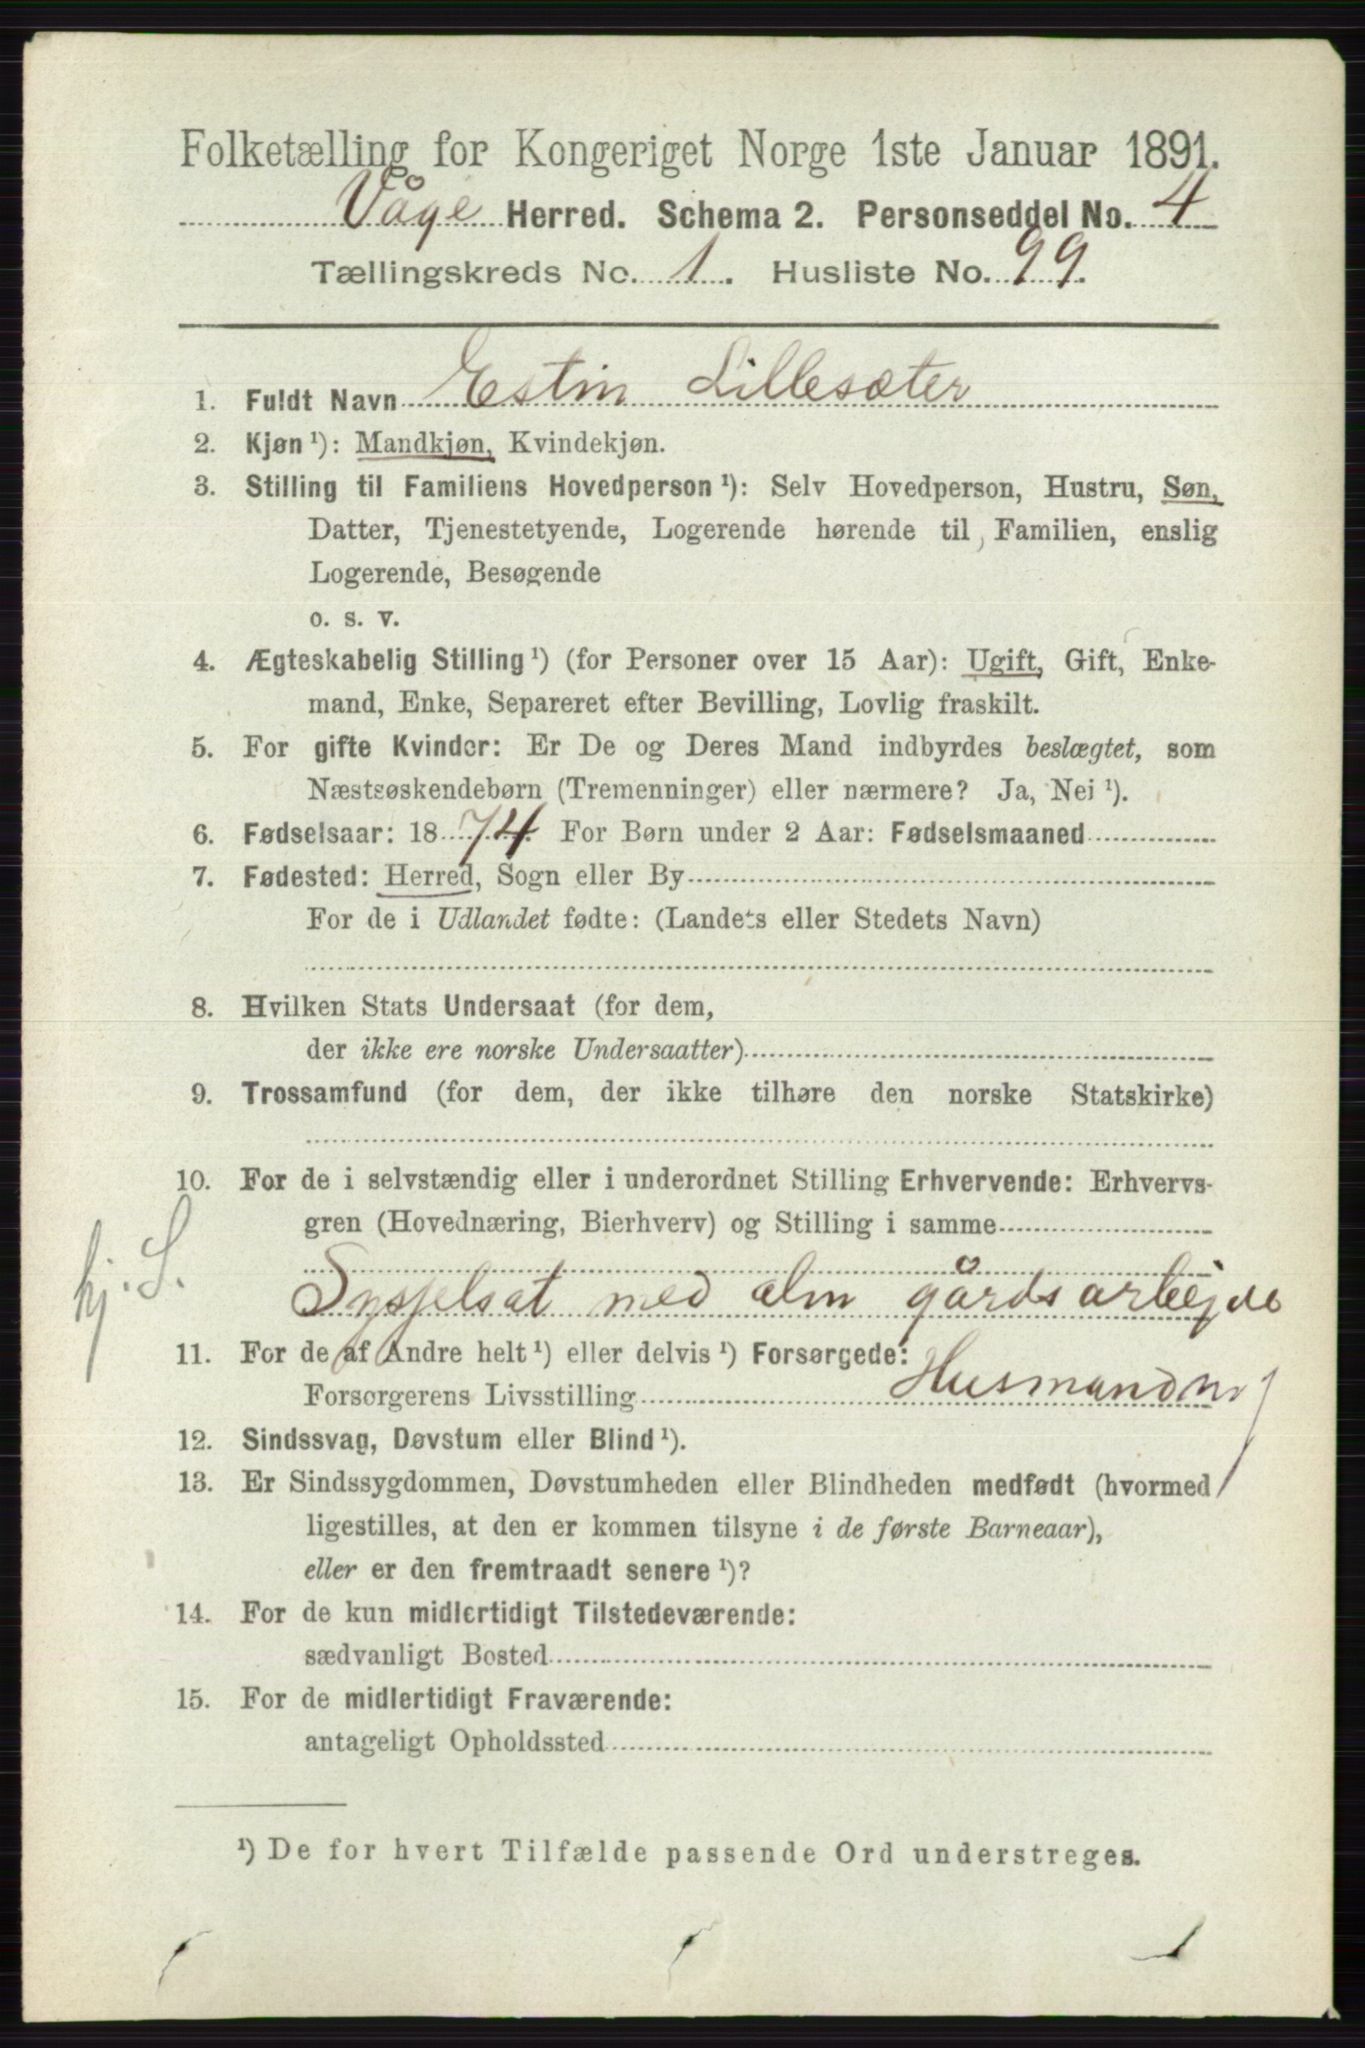 Folketælling for Kongeriget Norge 1ste Januar 1891.
Våge Herred. Schema 2. Personseddel No. 4
Tællingskreds No. 1. Husliste No. 99.
1. Fuldt Navn Estin Lillesæter
2. Kjøn ¹): Mandkjøn, Kvindekjøn.
3. Stilling til Familiens Hovedperson ¹): Selv Hovedperson, Hustru, Søn,
Datter, Tjenestetyende, Logerende hørende til Familien, enslig
Logerende, Besøgende
o. s. v.
4. Ægteskabelig Stilling ¹) (for Personer over 15 Aar): Ugift, Gift, Enke-
mand, Enke, Separeret efter Bevilling, Lovlig fraskilt.
5. For gifte Kvinder: Er De og Deres Mand indbyrdes beslægtet, som
Næstsøskendebørn (Tremenninger) eller nærmere? Ja, Nei ¹).
6. Fødselsaar: 1874. For Børn under 2 Aar: Fødselsmaaned
7. Fødested: Herred, Sogn eller By
For de i Udlandet fødte: (Landets eller Stedets Navn)
8. Hvilken Stats Undersaat (for dem,
der ikke ere norske Undersaatter)
9. Trossamfund (for dem, der ikke tilhøre den norske Statskirke)
10. For de i selvstændig eller i underordnet Stilling Erhvervende: Erhvervs-
gren (Hovednæring, Bierhverv) og Stilling i samme
hj. S.
Sysselsat med alm gårdsarbejde
11. For de af Andre helt ¹) eller delvis ¹) Forsørgede:
Forsørgerens Livsstilling Husmand m/
12. Sindssvag, Døvstum eller Blind ¹).
13. Er Sindssygdommen, Døvstumheden eller Blindheden medfødt (hvormed
ligestilles, at den er kommen tilsyne i de første Barneaar),
eller er den fremtraadt senere ¹)?
14. For de kun midlertidigt Tilstedeværende:
sædvanligt Bosted
15. For de midlertidigt Fraværende:
antageligt Opholdssted
¹) De for hvert Tilfælde passende Ord understreges.